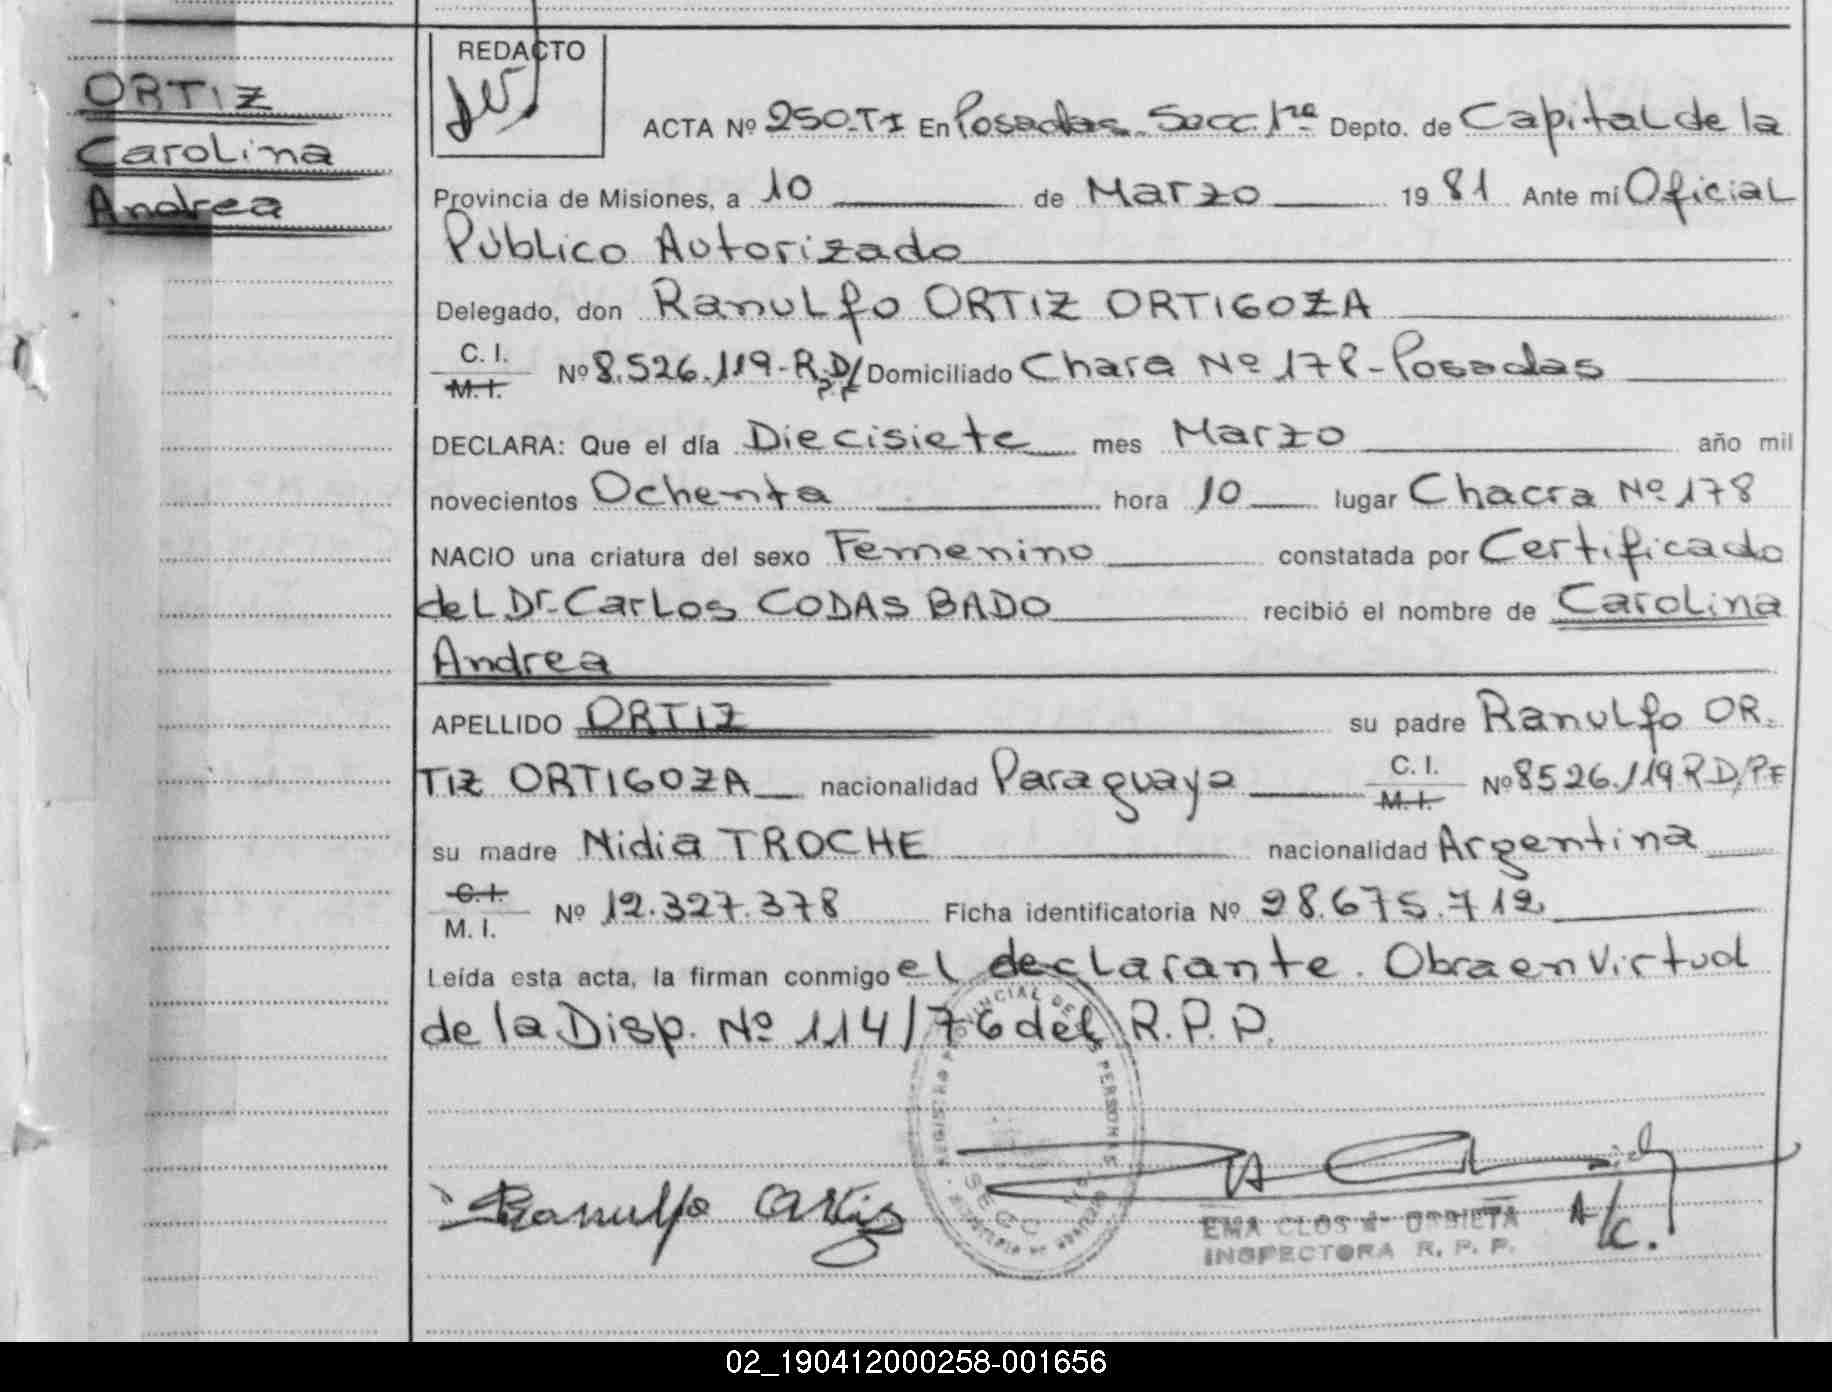 ORTIZ
Carolina
Andrea
REDACTO
ACTA Nº 250-TI En Posadas Secc. 1ra Depto. de Capital de la
Provincia de Misiones, a 10 de Marzo 1981 Ante mi Oficial
Público Autorizado
Delegado, don Ranulfo ORTIZ ORTIGOZA
C. I.
M. I. Nº 8.526.119-R.D/P.F Domiciliado Chara Nº 178-Posadas
DECLARA: Que el día Diecisiete mes Marzo año mil
novecientos Ochenta hora 10 lugar Chacra Nº 178
NACIO una criatura del sexo Femenino constatada por Certificado
del Dr. Carlos CODAS BADO recibió el nombre de Carolina
Andrea
APELLIDO ORTIZ su padre Ranulfo OR-
TIZ ORTIGOZA nacionalidad Paraguaya C. I. M. I. Nº 8526.119 R.D/P.F
su madre Nidia TROCHE nacionalidad Argentina
C. I.
M. I. Nº 12.327.378 Ficha identificatoria Nº 28.675.712
Leída esta acta, la firman conmigo el declarante. Obra en Virtud
de la Disp. Nº 114/76 del R.P.P.
REGISTRO PROVINCIAL DE LAS PERSONAS
SECC.
Ranulfo Ortiz
EMA CLOS d- URBIETA A/C.
INSPECTORA R. P. P.
02_190412000258-001656